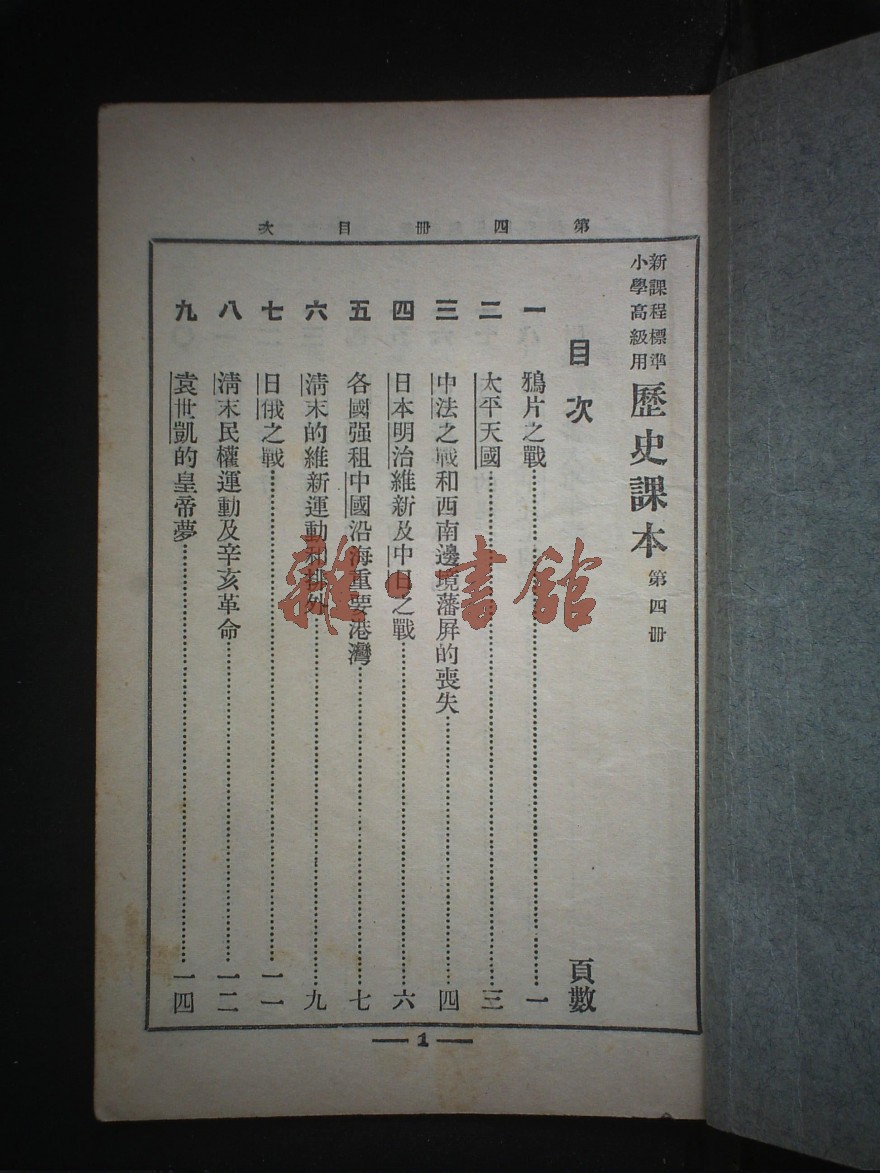 第四册目次
新課程標準
小學高級用
歷史課本 第四册
目次 頁數
一 鴉片之戰 一
二 太平天國 三
三 中法之戰和西南邊境藩屏的喪失 四
四 日本明治維新及中日之戰 六
五 各國强租中國沿海重要港灣 七
六 淸末的維新運動和排外 九
七 日俄之戰 一一
八 淸末民權運動及辛亥革命 一二
九 袁世凱的皇帝夢 一四
1
雜·書館